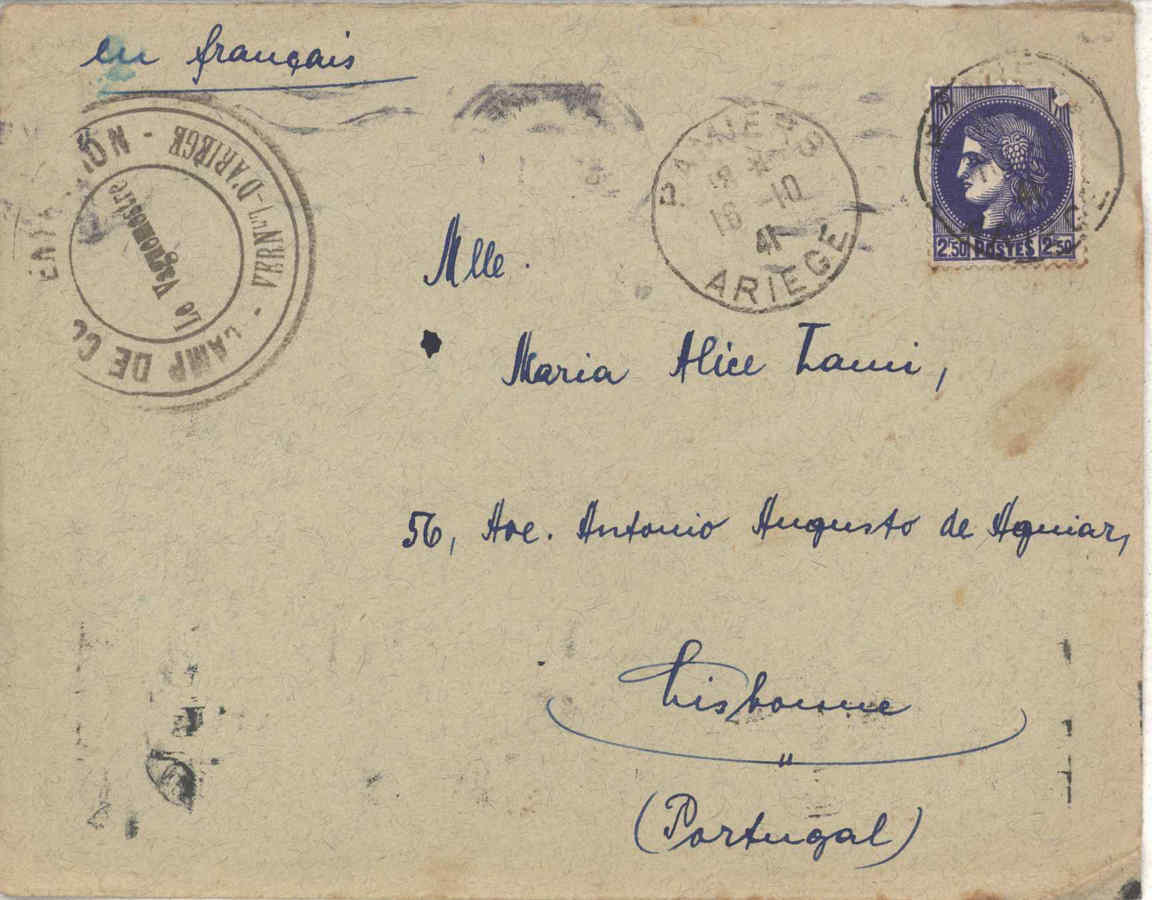 en français
CAMP DE
VERNET-D'ARIEGE
Le Vaguemestre
PAMIERS
18 H
16 -10
41
ARIEGE
2.50 POSTES 2.50
Mlle.
Maria Alice Lami,
56, Ave. Antonio Augusto de Aguiar,
Lisbonne
(Portugal)